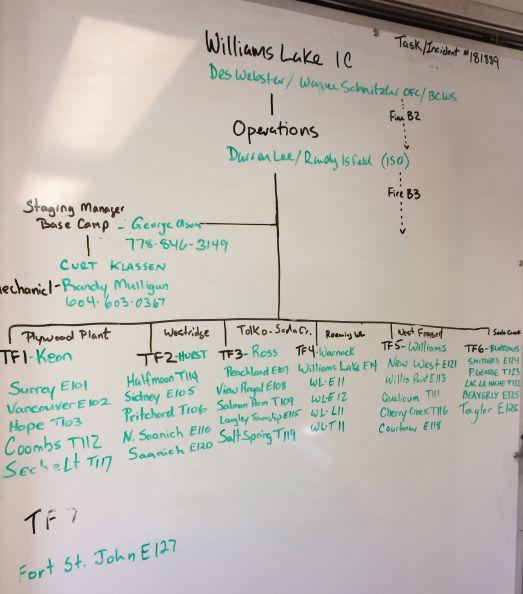 Williams Lake IC
Task/Incident #181889
Des Webster/Wayne Schnitzler OFC/BCWS
Fire B2
Operations
Darran Lee/Randy Isfeld (ISO)
Fire B3
Staging Manager
Base Camp - George Olson
778-846-3149
CURT KLASSEN
echanic1-Randy Mulligan
604-603-0367
Plywood Plant
TF1-Keon
Surrey E101
Vancouver E102
Hope T103
Coombs T112
Sechelt T117
Westridge
TF2-HURST
Halfmoon T114
Sidney E105
Pritchard T106
N. Saanich E110
Saanich E120
Tolko-Soda Cr.
TF3-Ross
Peachland E107
View Royal E108
Salmon Arm T109
Langley Township E115
Salt Spring T119
Roaming WL
TF4-Warnock
Williams Lake
WL-E11
WL-E12
WL-L11
WL-T11
West Fraser
TF5-Williams
New West E121
Willis Point E113
Qualicum T111
Cherry Creek T116
Courtenay E118
Soda Creek
TF6-BURROWS
SMITHERS E124
P.GEORGE T123
LAC LA HACHE T122
BEAVERLY E125
Taylor E126
TF7
Fort St. John E127